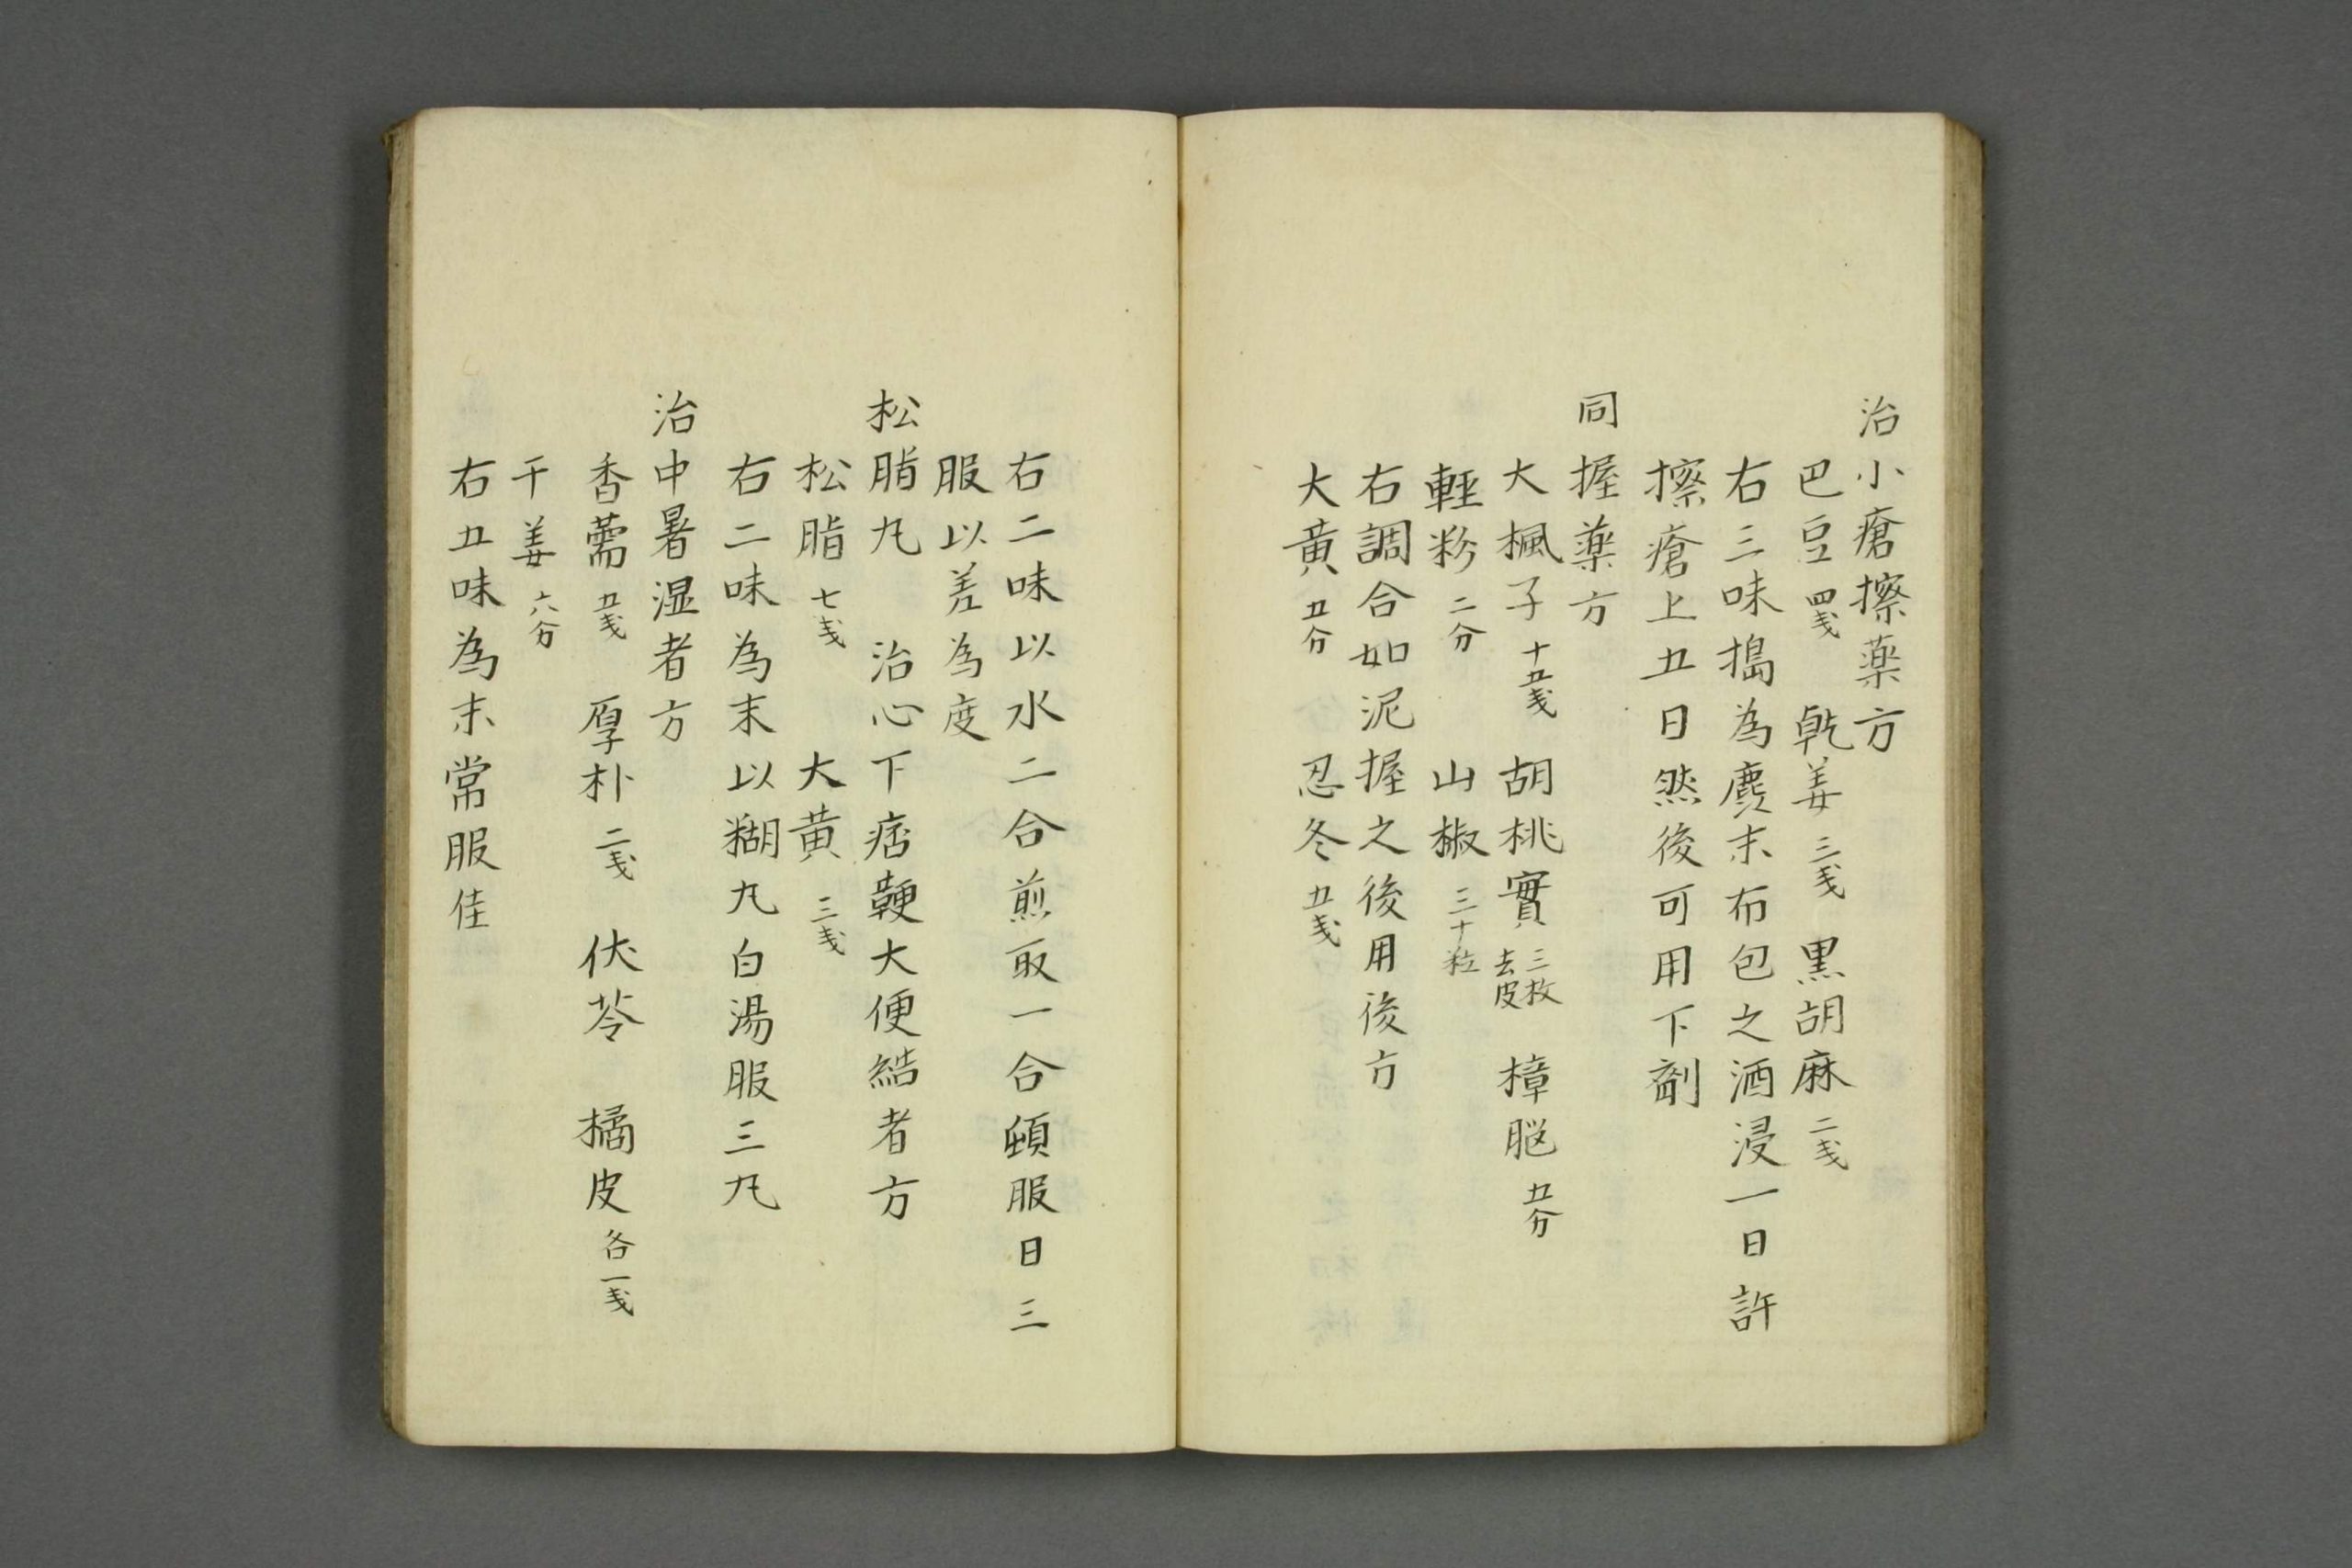 治小瘡擦薬方
巴豆四戔　乾姜三戔　黒胡麻二戔
右三味搗為麁末布包之酒浸一日許
擦瘡上五日然後可用下劑
同握薬方
大楓子十五戔　胡桃實三枚去皮　樟脳五分
輕粉二分　山椒三十粒
右調合如泥握之後用後方
大黄五分　忍冬五戔
右二味以水二合煎取一合頓服日三
服以差為度
松脂丸　治心下痞鞕大便結者方
松脂七戔　大黄三戔
右二味為末以糊丸白湯服三丸
治中暑湿者方
香薷五戔　厚朴二戔　伏苓　橘皮各一戔
干姜六分
右五味為末常服佳